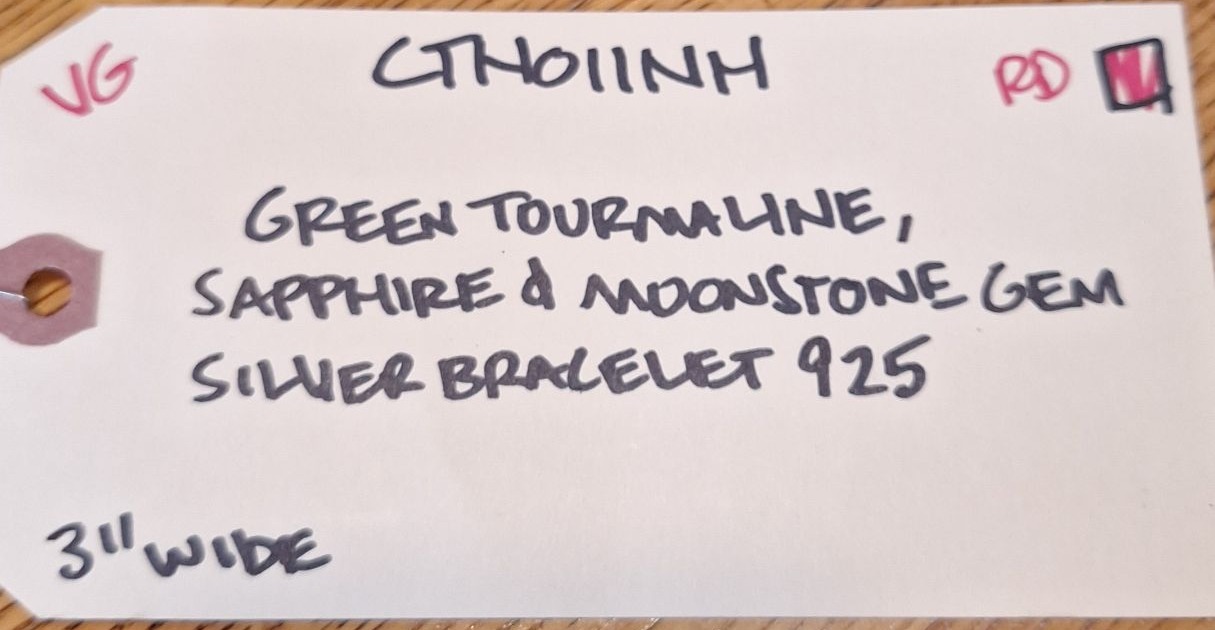 VG CTHO11NH RD
GREEN TOURMALINE,
SAPPHIRE & MOONSTONE GEM
SILVER BRACELET 925
3" WIDE